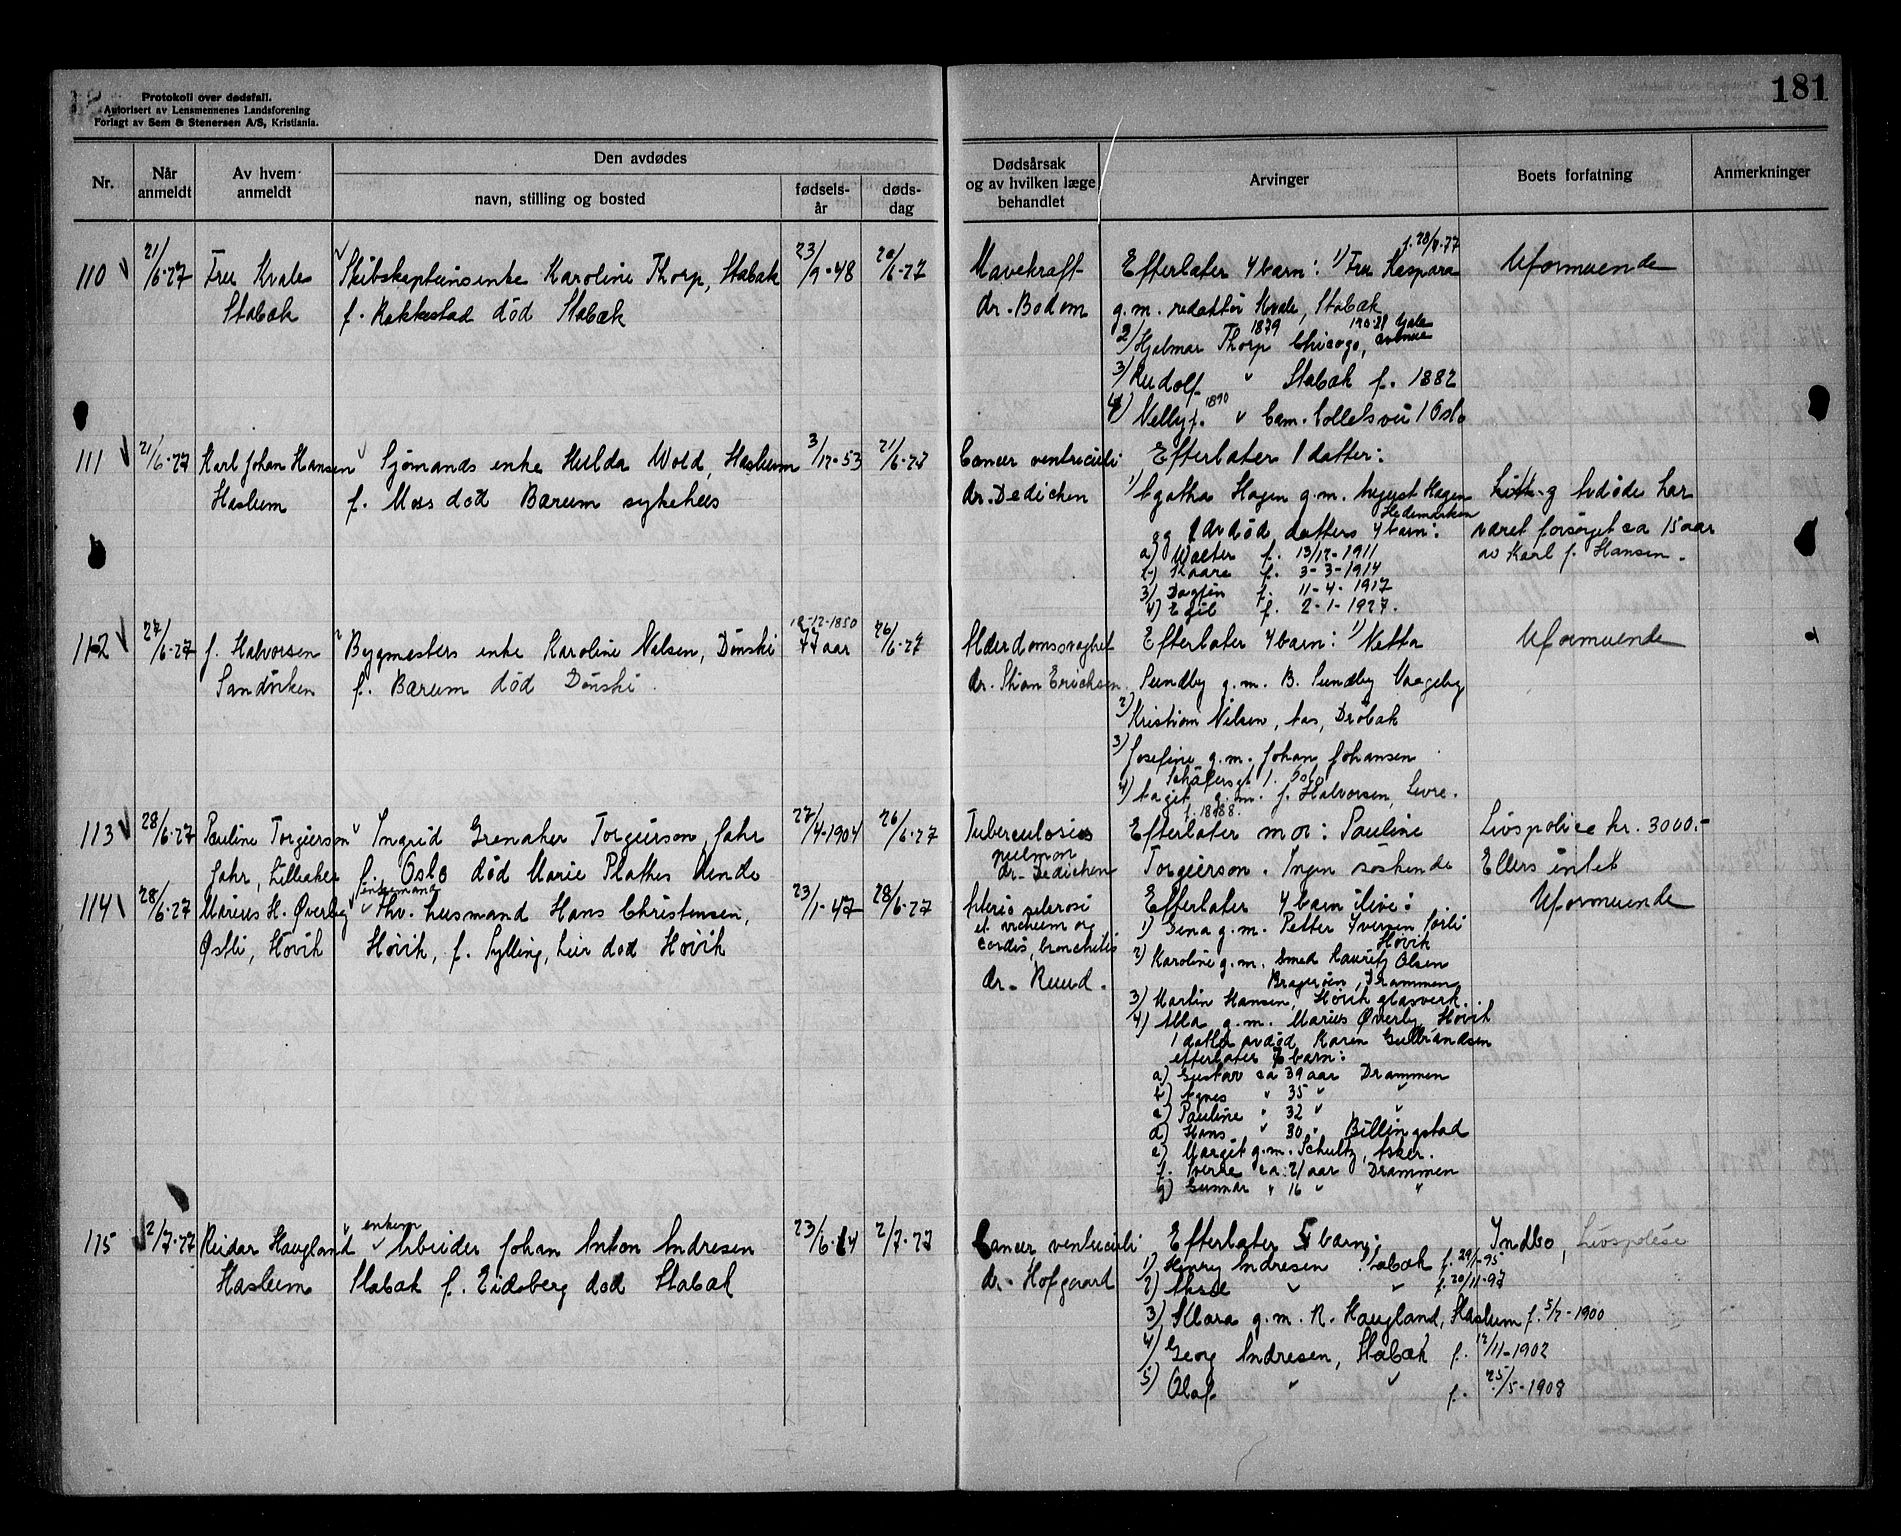 181
Protokoll over dødsfall.
Autorisert av Lensmennenes Landsforening
Forlagt av Sem & Stenersen A/S, Kristiania.
Nr.
Når anmeldt
Av hvem anmeldt
Den avdødes
navn, stilling og bosted
fødsels-år
døds-dag
Dødsårsak og av hvilken læge behandlet
Arvinger
Boets forfatning
Anmerkninger
110 21/6-27 Fru Kvale Skibskapteinsenke Karoline Thorp, Stabæk 23/9-48 20/6-27
Stabæk f. Rakkestad död Stabæk
Mavekræft
dr. Bodom
f. 28/9-77
Efterlater 4 barn: 1) Fru Kaspara
g.m. redaktör Kvale, Stabæk
2) Hjalmar Thorp 1879 Chicago, avenue
3) Rudolf " Stabæk f. 1882
4) Nelly f. 1890 " Cam. Colletsvei 1 Oslo
Uformuende
111 21/6-27 Karl Johan Hansen Sjömands enke Hulda Wold, Haslum 3/12-53 21/6-27
Haslum f. Moss död Bærum sykehus
Cancer ventriculi
dr. Dedichen
Efterlater 1 datter:
1) Agatha Hagen g.m. August Hagen
Hedemarken
og 1 avdöd datters 4 barn:
a) Walter f. 13/12-1911
b) Kaare f. 3-3-1914
3) Dagfin f. 11-4-1917
4) Egil f. 2-1-1927.
Avdöde har
været forsörget ca 15 aar
av Karl J. Hansen.
112 27/6-27 J. Halvorsen Bygmesters enke Karoline Nilsen, Dönski 77 aar 26/6-27
-12-1850
Sandviken f. Bærum död Dönski
Alderdomssvaghet
dr. Stian Erichsen
Efterlater 4 barn: 1) Netta
Sundby g.m. B. Sundby Vaageby
2) Kristian Nilsen, Aas, Dröbak
3) Josefine g.m. Johan Johansen
Schäfersgt 1. Oslo
4) Aagot g.m. J. Halvorsen, Levre.
f. 1888.
Uformuende
113 28/6-27 Pauline Torgurson Ingrid Grenaker Torgurson Jahr 27/4-1904 26/6-27
Jahr, Lilleaker f. Oslo död Marie Plathes Minde
Tuberculosis
pulmon
dr. Dedichen
Efterlater mor: Pauline
Torgurson. Ingen söskende
Livspolice kr. 3000.-
Ellers intet
114 28/6-27 Marius H. Øverby Fhv. husmand Hans Christensen, 23/1-47 28/6-27
enkemand
Østli, Høvik Høvik, f. Sylling, Lier död Høvik
Arterio sclerosi
cordis, bronchitis
dr. Ruud.
Efterlater 4 barn ilive:
1) Gina g.m. Petter Iversen Sörli
Høvik
2) Karoline g.m. smed Lauritz Olsen
Bragerøen, Drammen
3) Martin Hansen, Høvik glasverk.
4) Alla g.m. Marius Øverby, Høvik
1 datter avdöd Karen Gulbrandsen
efterlater 7 barn:
a) Gustav ca 39 aar Drammen
b) Agnes " 35 " "
c) Pauline " 32 " "
d) Hans " 30 " Billingstad
e) Margit g.m. Schultz, Asker.
f. Sverre ca. 21 aar Drammen
g) Gunnar " 16 " "
Uformuende
115 2/7-27 Reidar Haugland Arbeider Johan Anton Andresen 23/6-64 2/7-27
enkem
Haslum Stabæk f. Eidsberg död Stabæk
Cancer ventriculi
dr. Hofgaard
Efterlater 5 barn:
1) Henry Andresen Stabæk f. 29/1-95
2) Aksel " " f. 20/11-97
3) Klara g.m. R. Haugland, Haslum f. 5/7-1900
4) Georg Andresen, Stabæk f. 12/11-1902
5) Olaf " " f. 25/5-1908
Indbo, Livspolise